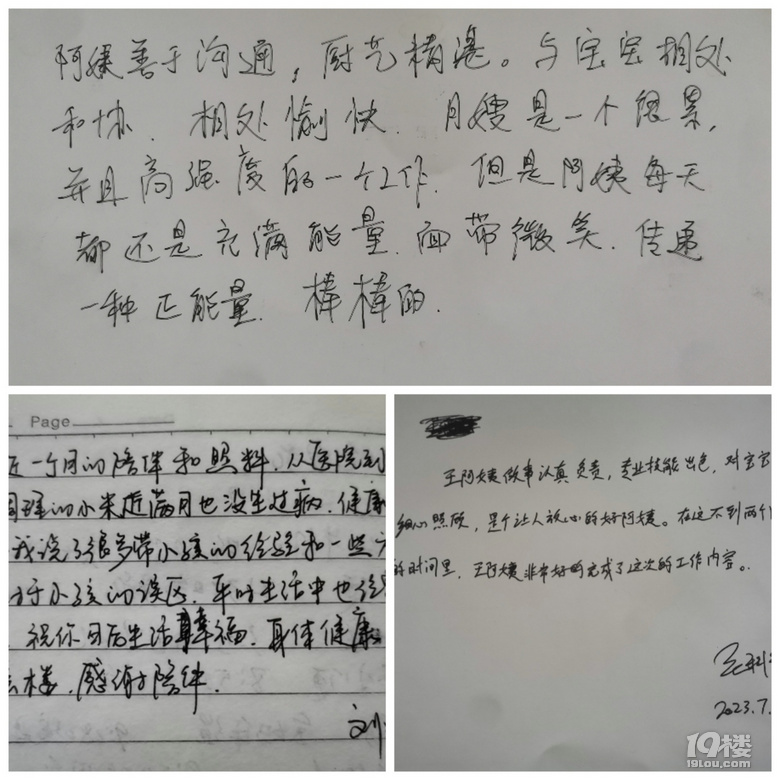 阿姨善于沟通，厨艺精湛。与宝宝相处
和协．相处愉快．月嫂是一个很累，
并且高强度的一个工作．但是阿姨每天
都还是充满能量．面带微笑．传递
一种正能量．棒棒的．
Page
近一个月的陪伴和照料，从医院到
的小米近满月也没生过病．健康
我说了很多带小孩的经验和一些
于小孩的误区．平时生活中也
祝你日后生活幸福．身体健康
么样．感谢陪伴．
刘
王阿姨做事认真负责，专业技能出色，对宝宝
细心照顾，是个让人放心的好阿姨。在这不到两个
的时间里，王阿姨非常好的完成了这次的工作内容。
2023.7.
19楼
19lou.com